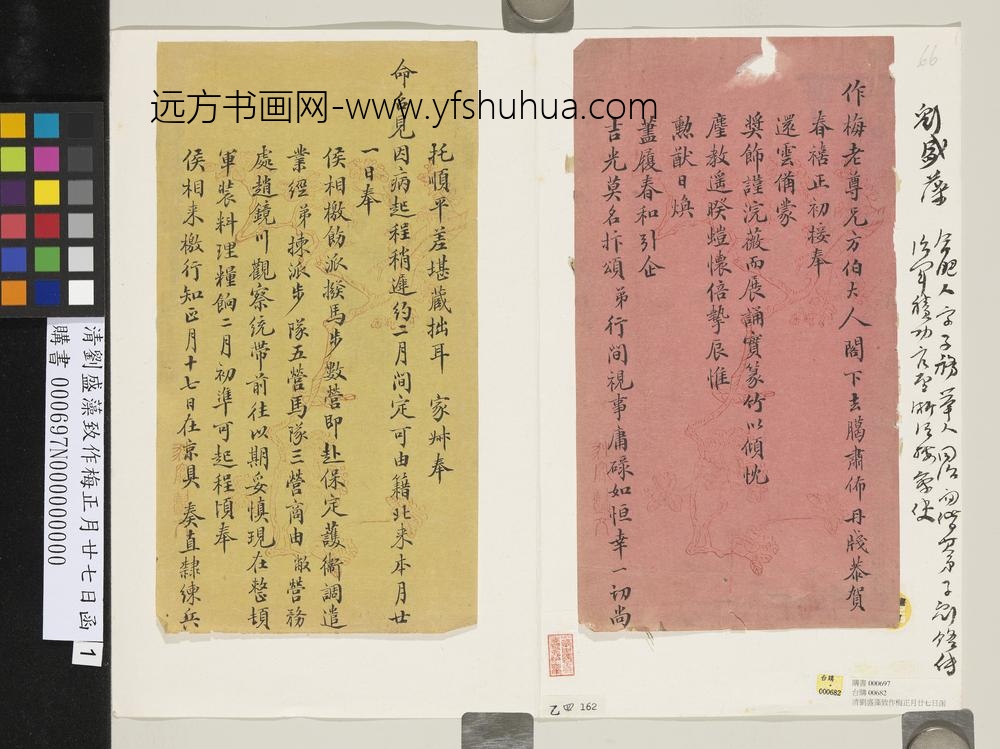 远方书画网-www.yfshuhua.com
66
劉盛藻
作梅老尊兄方伯大人閣下去臘肅佈丹牋恭賀
春禧正初接奉
還雲備蒙
獎飾謹浣薇而展誦實篆竹以傾忱
塵教遥暌螘懷倍摯辰惟
勲猷日煥
藎履春和引企
吉光莫名抃頌弟行間視事庸碌如恒幸一切尚
托順平差堪藏拙耳家艸奉
命
見因病起程稍遲約二月間定可由籍北来本月廿
一日奉
侯相檄飭派撥馬步數營即赴保定護衛調遣
業經弟揀派步隊五營馬隊三營商由敝營務
處趙鏡川觀察統帶前往以期妥慎現在整頓
軍裝料理糧餉二月初準可起程頃奉
侯相来檄行知正月十七日在京具奏直隸練兵
清劉盛藻致作梅正月廿七日函
購書 000697N000000000
1
乙四 162
台購
000682
購書 000697
台購 00682
清劉盛藻致作梅正月廿七日函